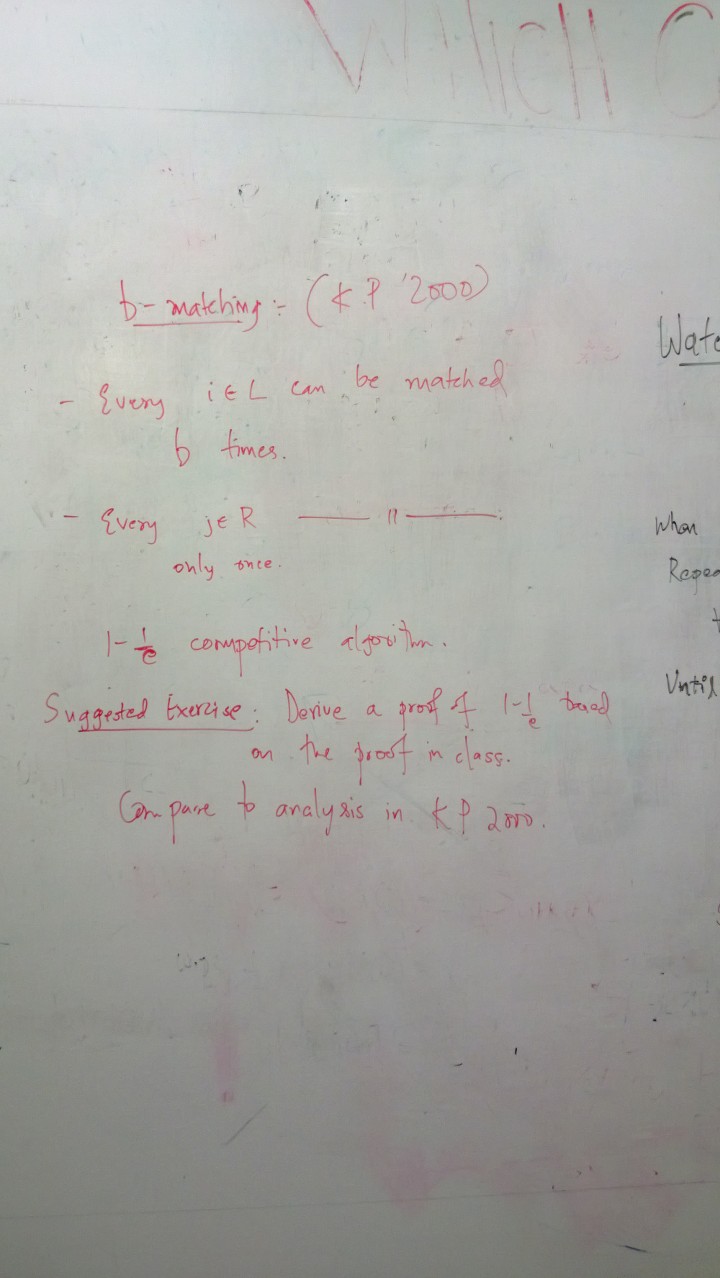 Which
b-matching :- (KP '2000)
- Every i ∈ L can be matched
b times.
- Every j ∈ R —— 11 ——.
only once.
1-1/e competitive algorithm.
Suggested Exercise: Derive a proof of 1-1/e based
on the proof in class.
Compare to analysis in KP 2000.
Wate
When
Repea
t
Until